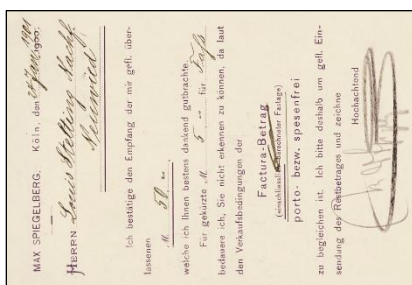 MAX SPIEGELBERG. Köln, den 25 Jan. 1901
HERRN Louis Stelting Nachf.
Neuwied
Ich bestätige den Empfang der mir gefl. über-
lassenen
M. 50.--
welche ich Ihnen bestens dankend gutbrachte.
Für gekürzte M. 5 -- für Fass
bedauere ich, Sie nicht erkennen zu können, da laut
den Verkaufsbedingungen der
Factura-Betrag
(einschliesslich berechneter Fastage)
porto- bezw. spesenfrei
zu begleichen ist. Ich bitte deshalb um gefl. Ein-
sendung des Restbetrages und zeichne
Hochachtend